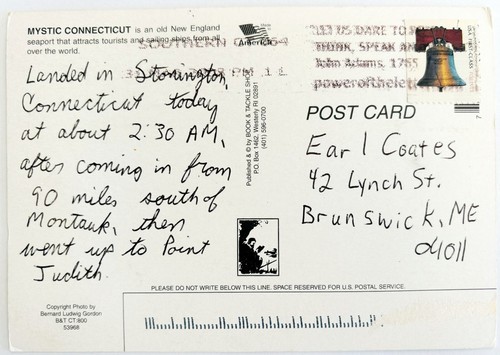 MYSTIC CONNECTICUT is an old New England
seaport that attracts tourists and sailing ships from all
over the world.
Landed in Stonington,
Connecticut today
at about 2:30 AM,
after coming in from
90 miles south of
Montauk, then
went up to Point
Judith.
Copyright Photo by
Bernard Ludwig Gordon
B&T CT:800
53968
America
SOUTHERN
PM
Published & © by BOOK & TACKLE SHOP
P.O. Box 1462, Westerly RI 02891
(401) 596-0700
LET US DARE TO
THINK, SPEAK AN
John Adams, 1765
poweroftheletter
USA FIRST-CLASS
POST CARD
Earl Coates
42 Lynch St.
Brunswick, ME
04011
PLEASE DO NOT WRITE BELOW THIS LINE. SPACE RESERVED FOR U.S. POSTAL SERVICE.